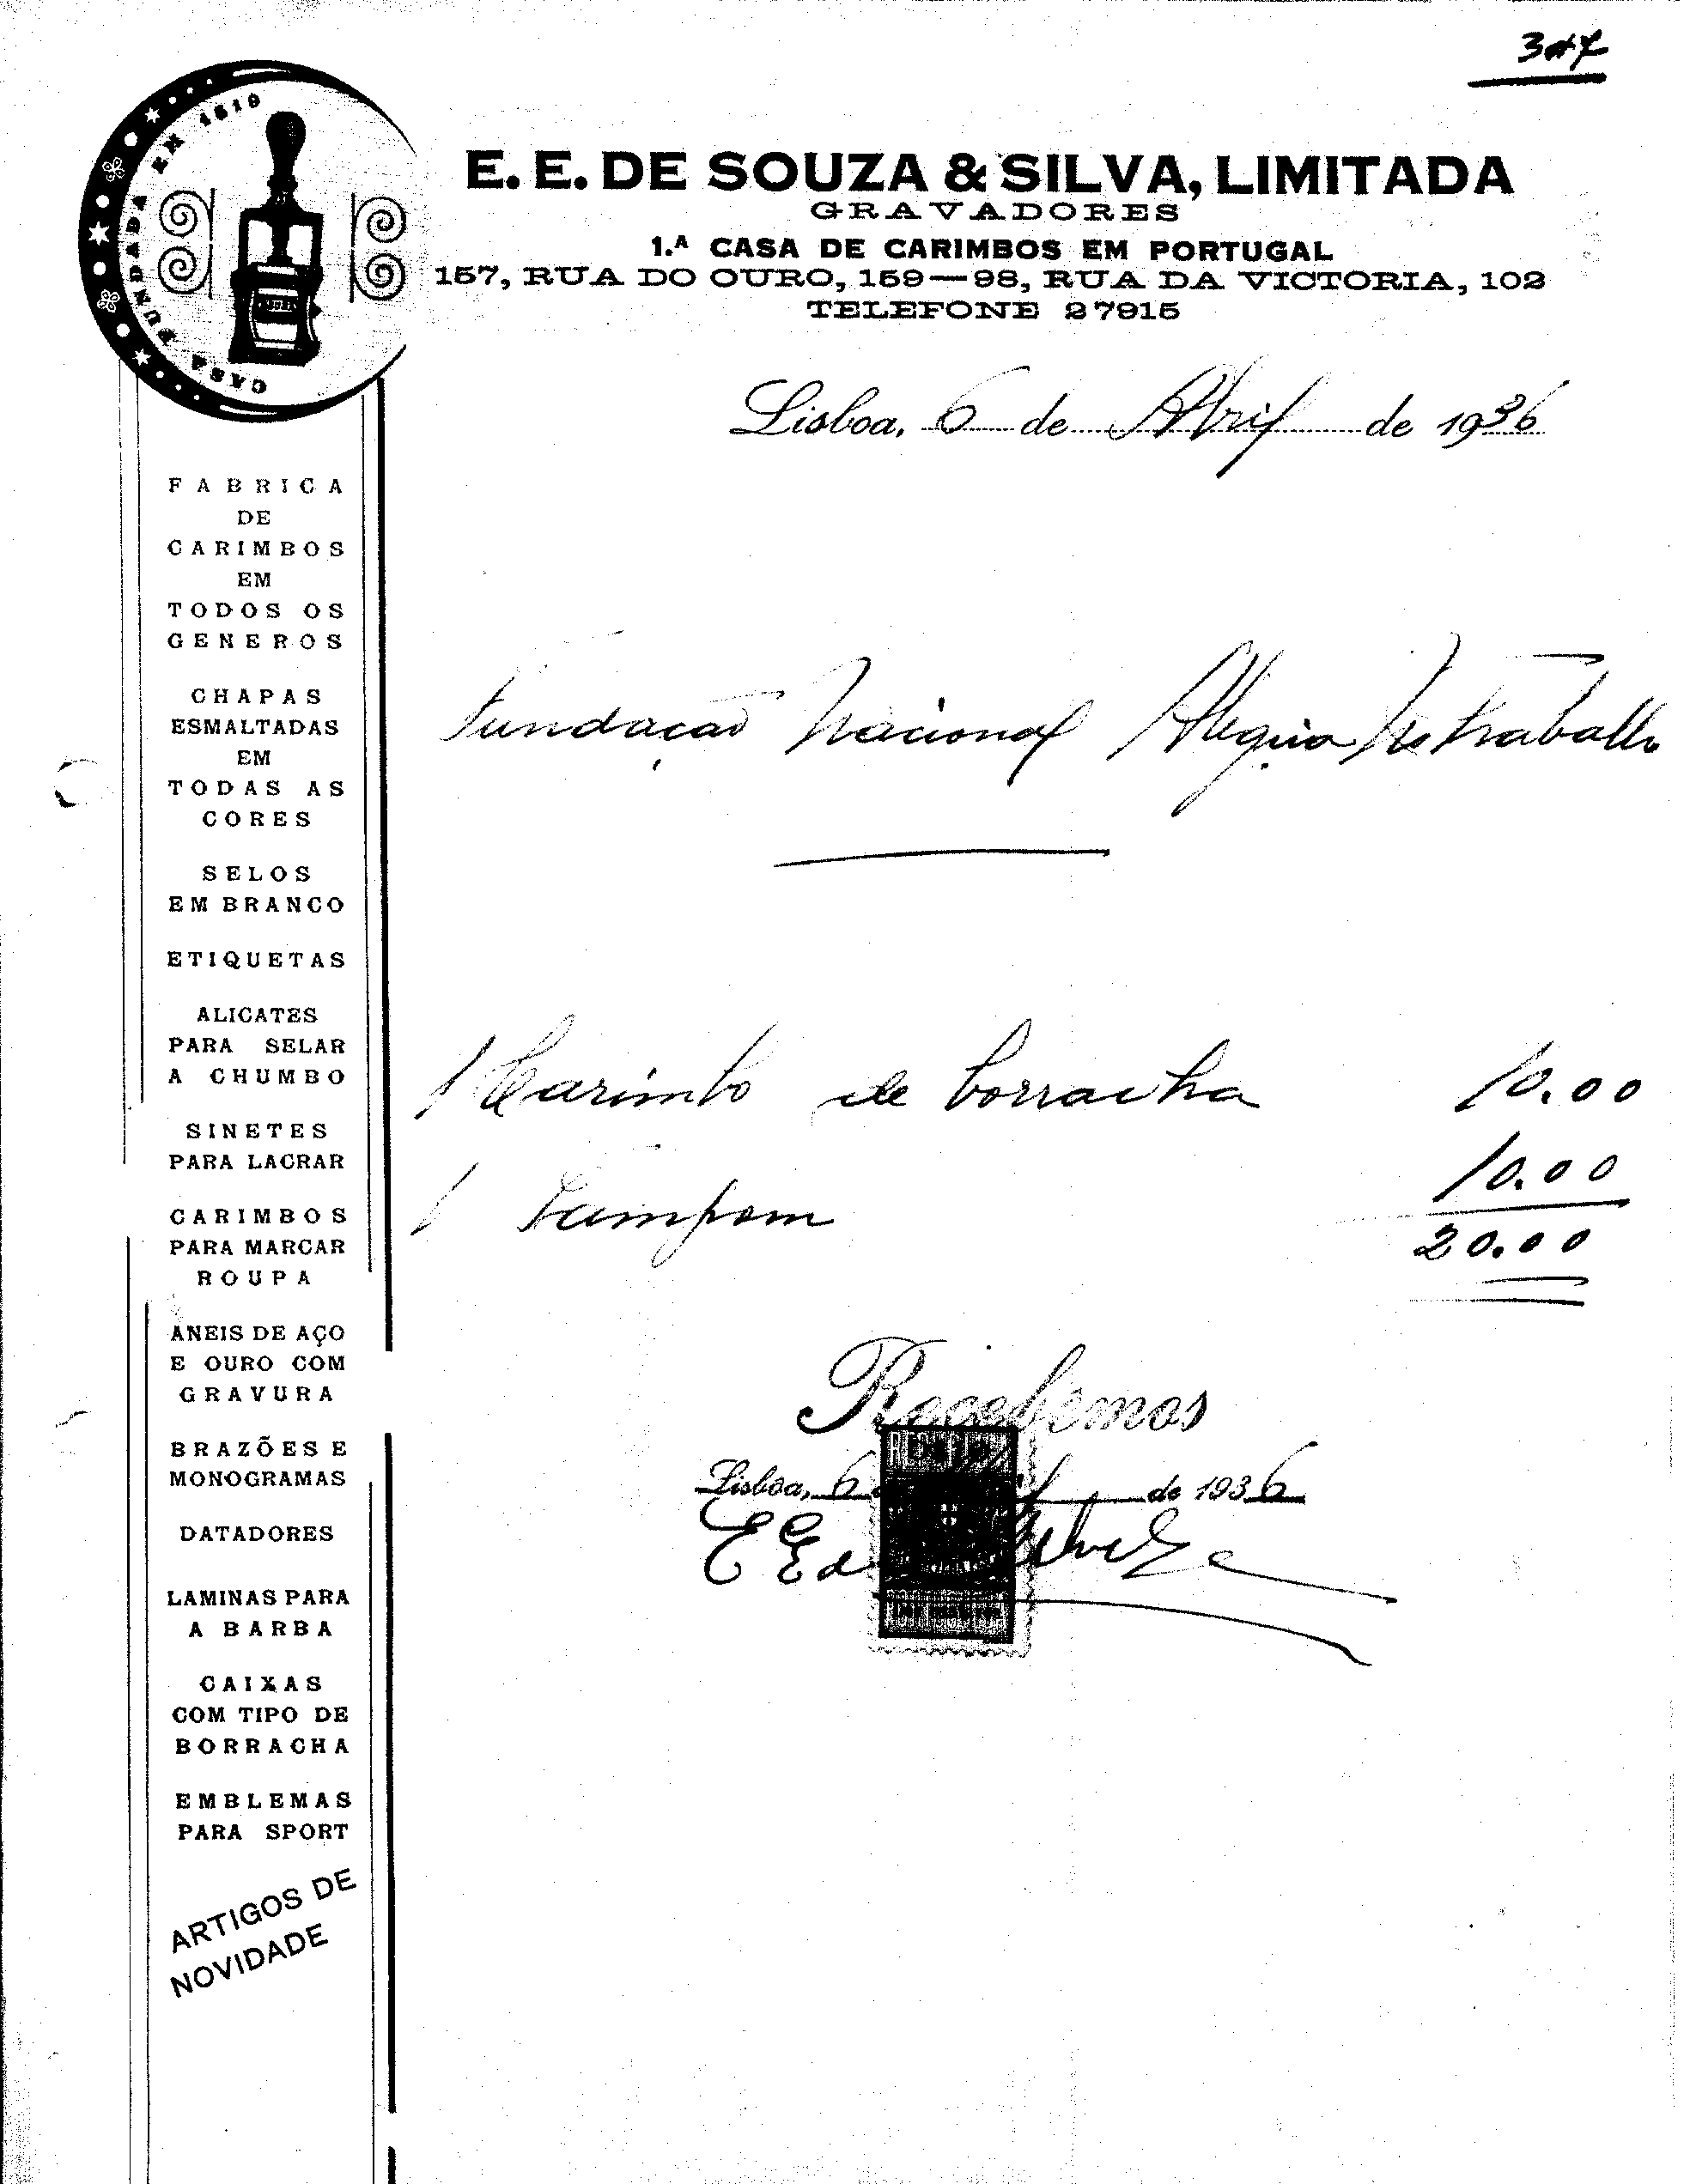 CASA FUNDADA EM
E. E. DE SOUZA & SILVA, LIMITADA
GRAVADORES
1.ᴬ CASA DE CARIMBOS EM PORTUGAL
157, RUA DO OURO, 159—98, RUA DA VICTORIA, 102
TELEFONE 27915
Lisboa, 6 de Abril de 1936
FABRICA
DE
CARIMBOS
EM
TODOS OS
GENEROS
CHAPAS
ESMALTADAS
EM
TODAS AS
CORES
SELOS
EM BRANCO
ETIQUETAS
ALICATES
PARA SELAR
A CHUMBO
SINETES
PARA LACRAR
CARIMBOS
PARA MARCAR
ROUPA
ANEIS DE AÇO
E OURO COM
GRAVURA
BRAZÕES E
MONOGRAMAS
DATADORES
LAMINAS PARA
A BARBA
CAIXAS
COM TIPO DE
BORRACHA
EMBLEMAS
PARA SPORT
ARTIGOS DE
NOVIDADE
Fundação Nacional Alegria no trabalho
1 Carimbo de borracha 10.00
1 Tampom 10.00
20.00
Recebemos
Lisboa, 6 de 1936